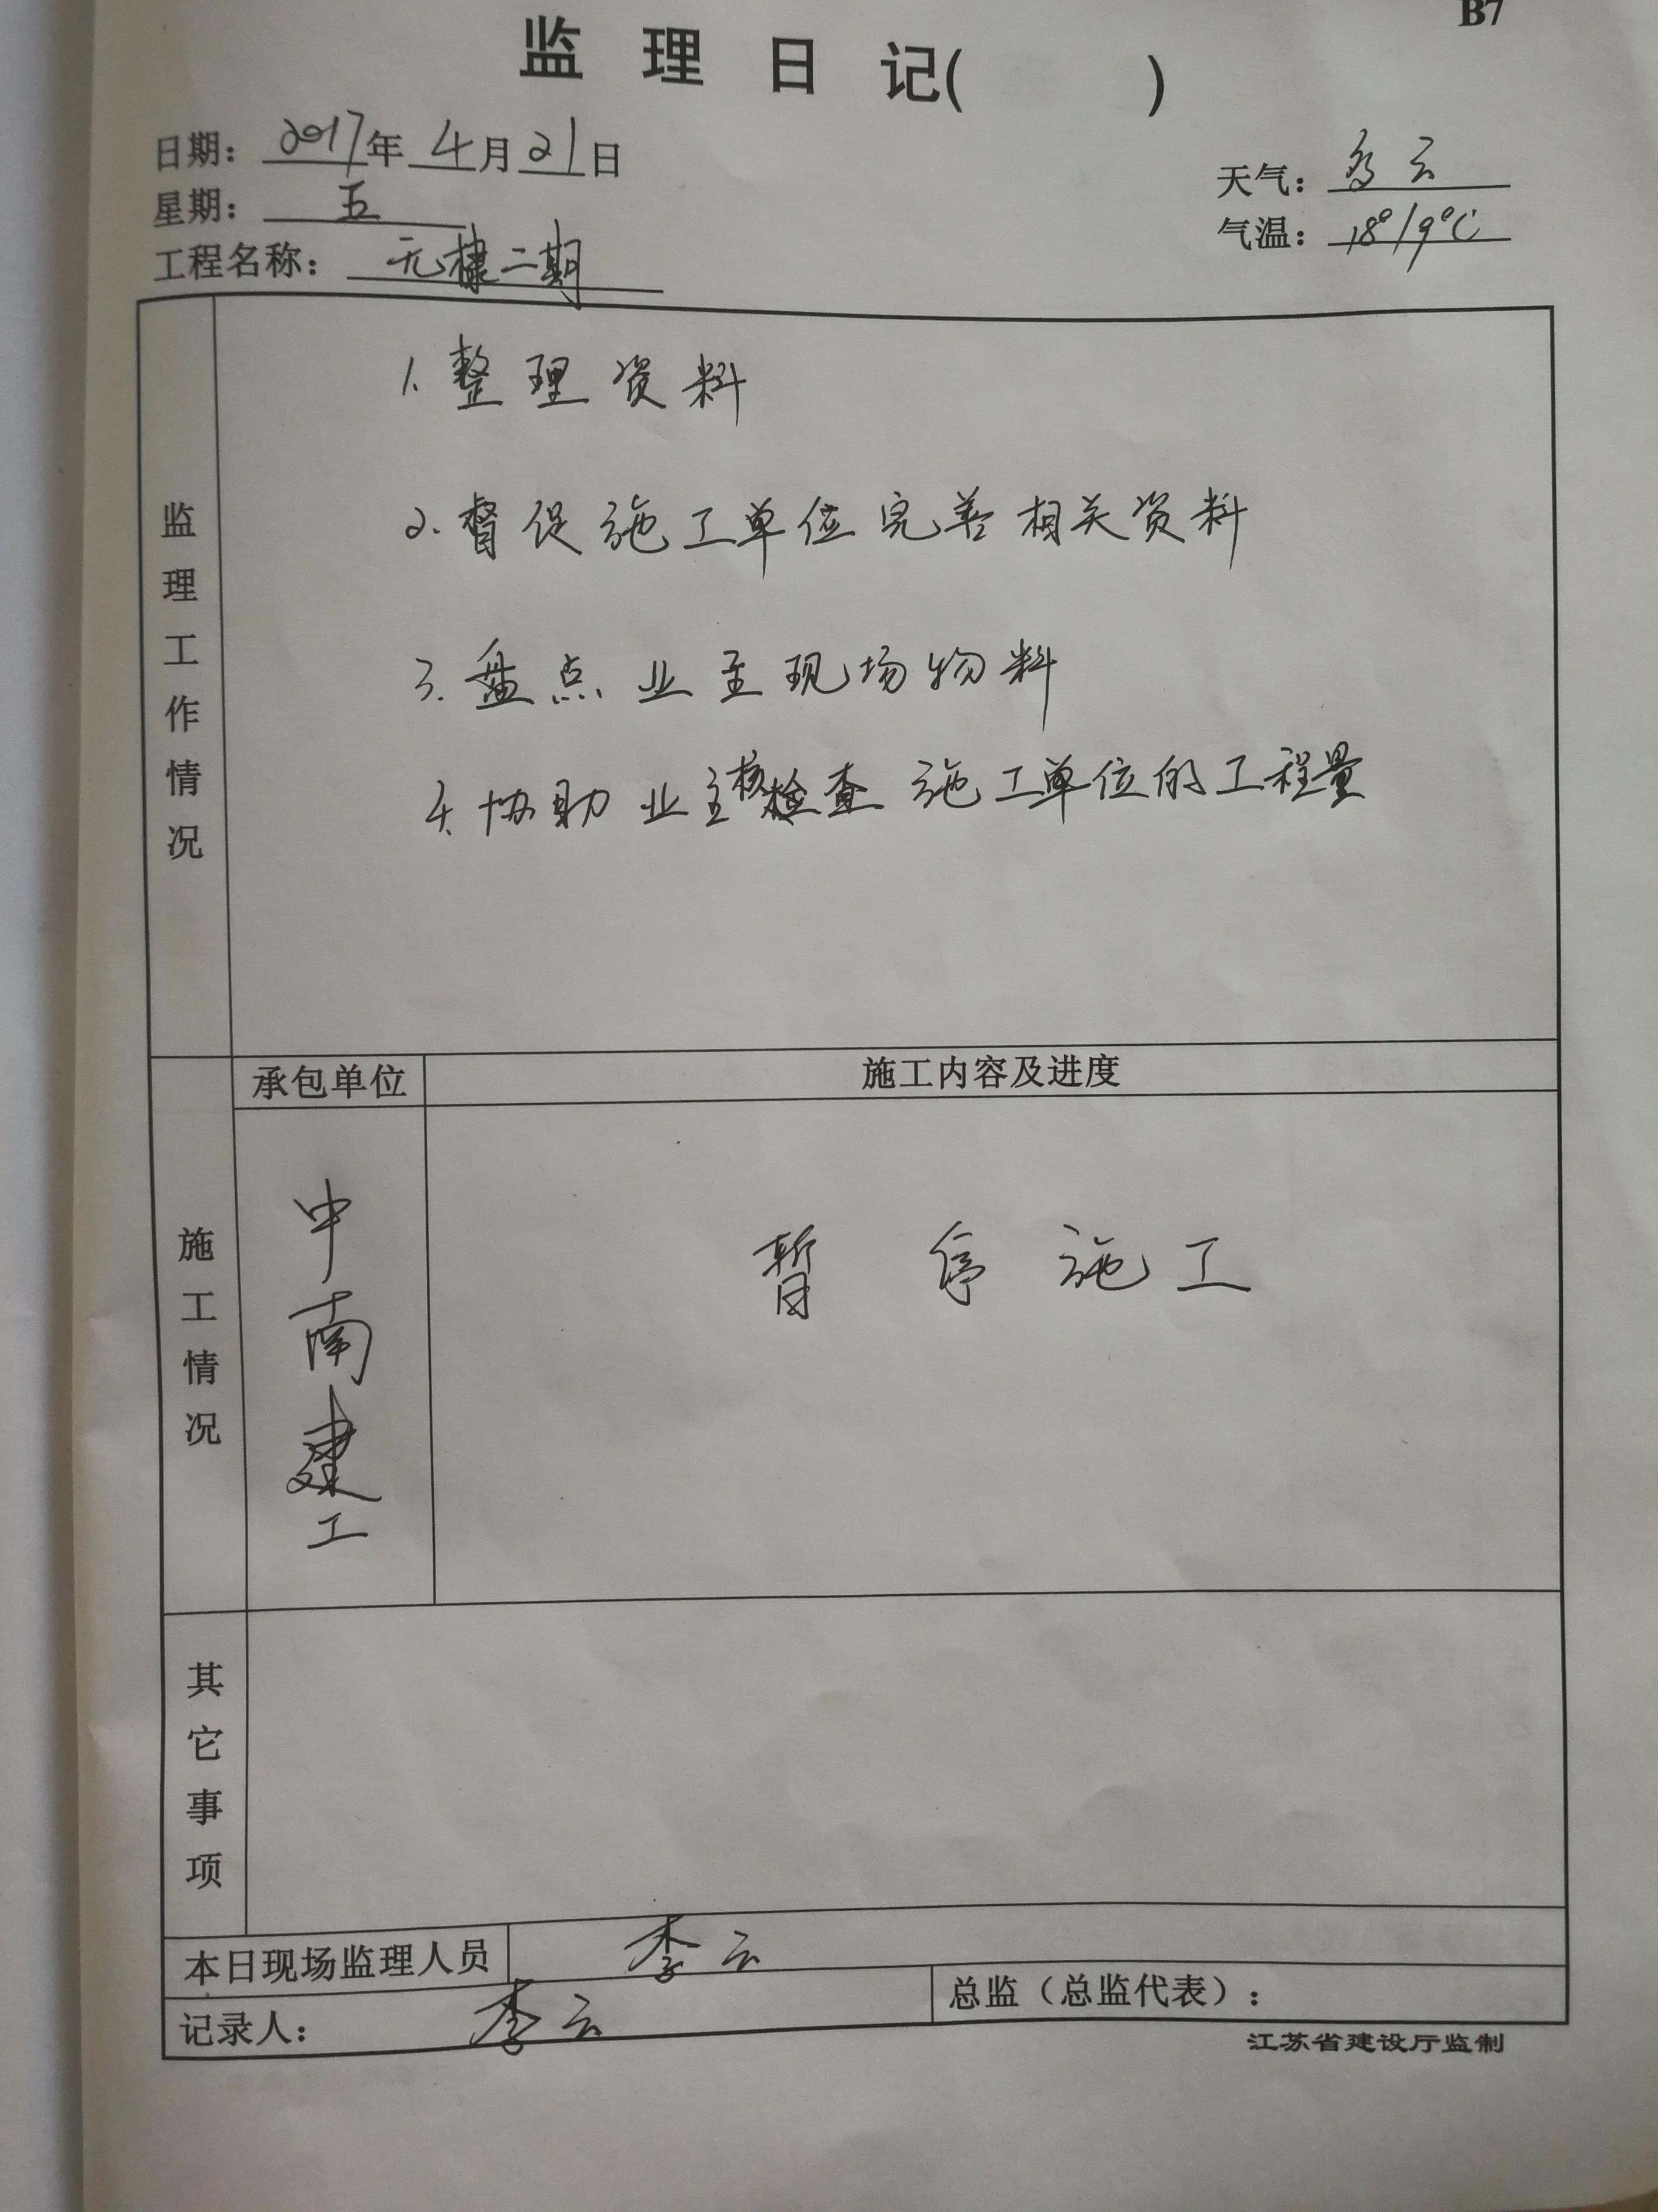 B7
监理日记( )
日期：2017年4月21日
天气：多云
星期：五
气温：18°/9°C
工程名称：无棣二期
监理工作情况
1.整理资料
2.督促施工单位完善相关资料
3.盘点业主现场物料
4.协助业主核检查施工单位的工程量
施工情况
承包单位
施工内容及进度
中南建工
暂停施工
其它事项
本日现场监理人员 李云
记录人：李云
总监（总监代表）：
江苏省建设厅监制